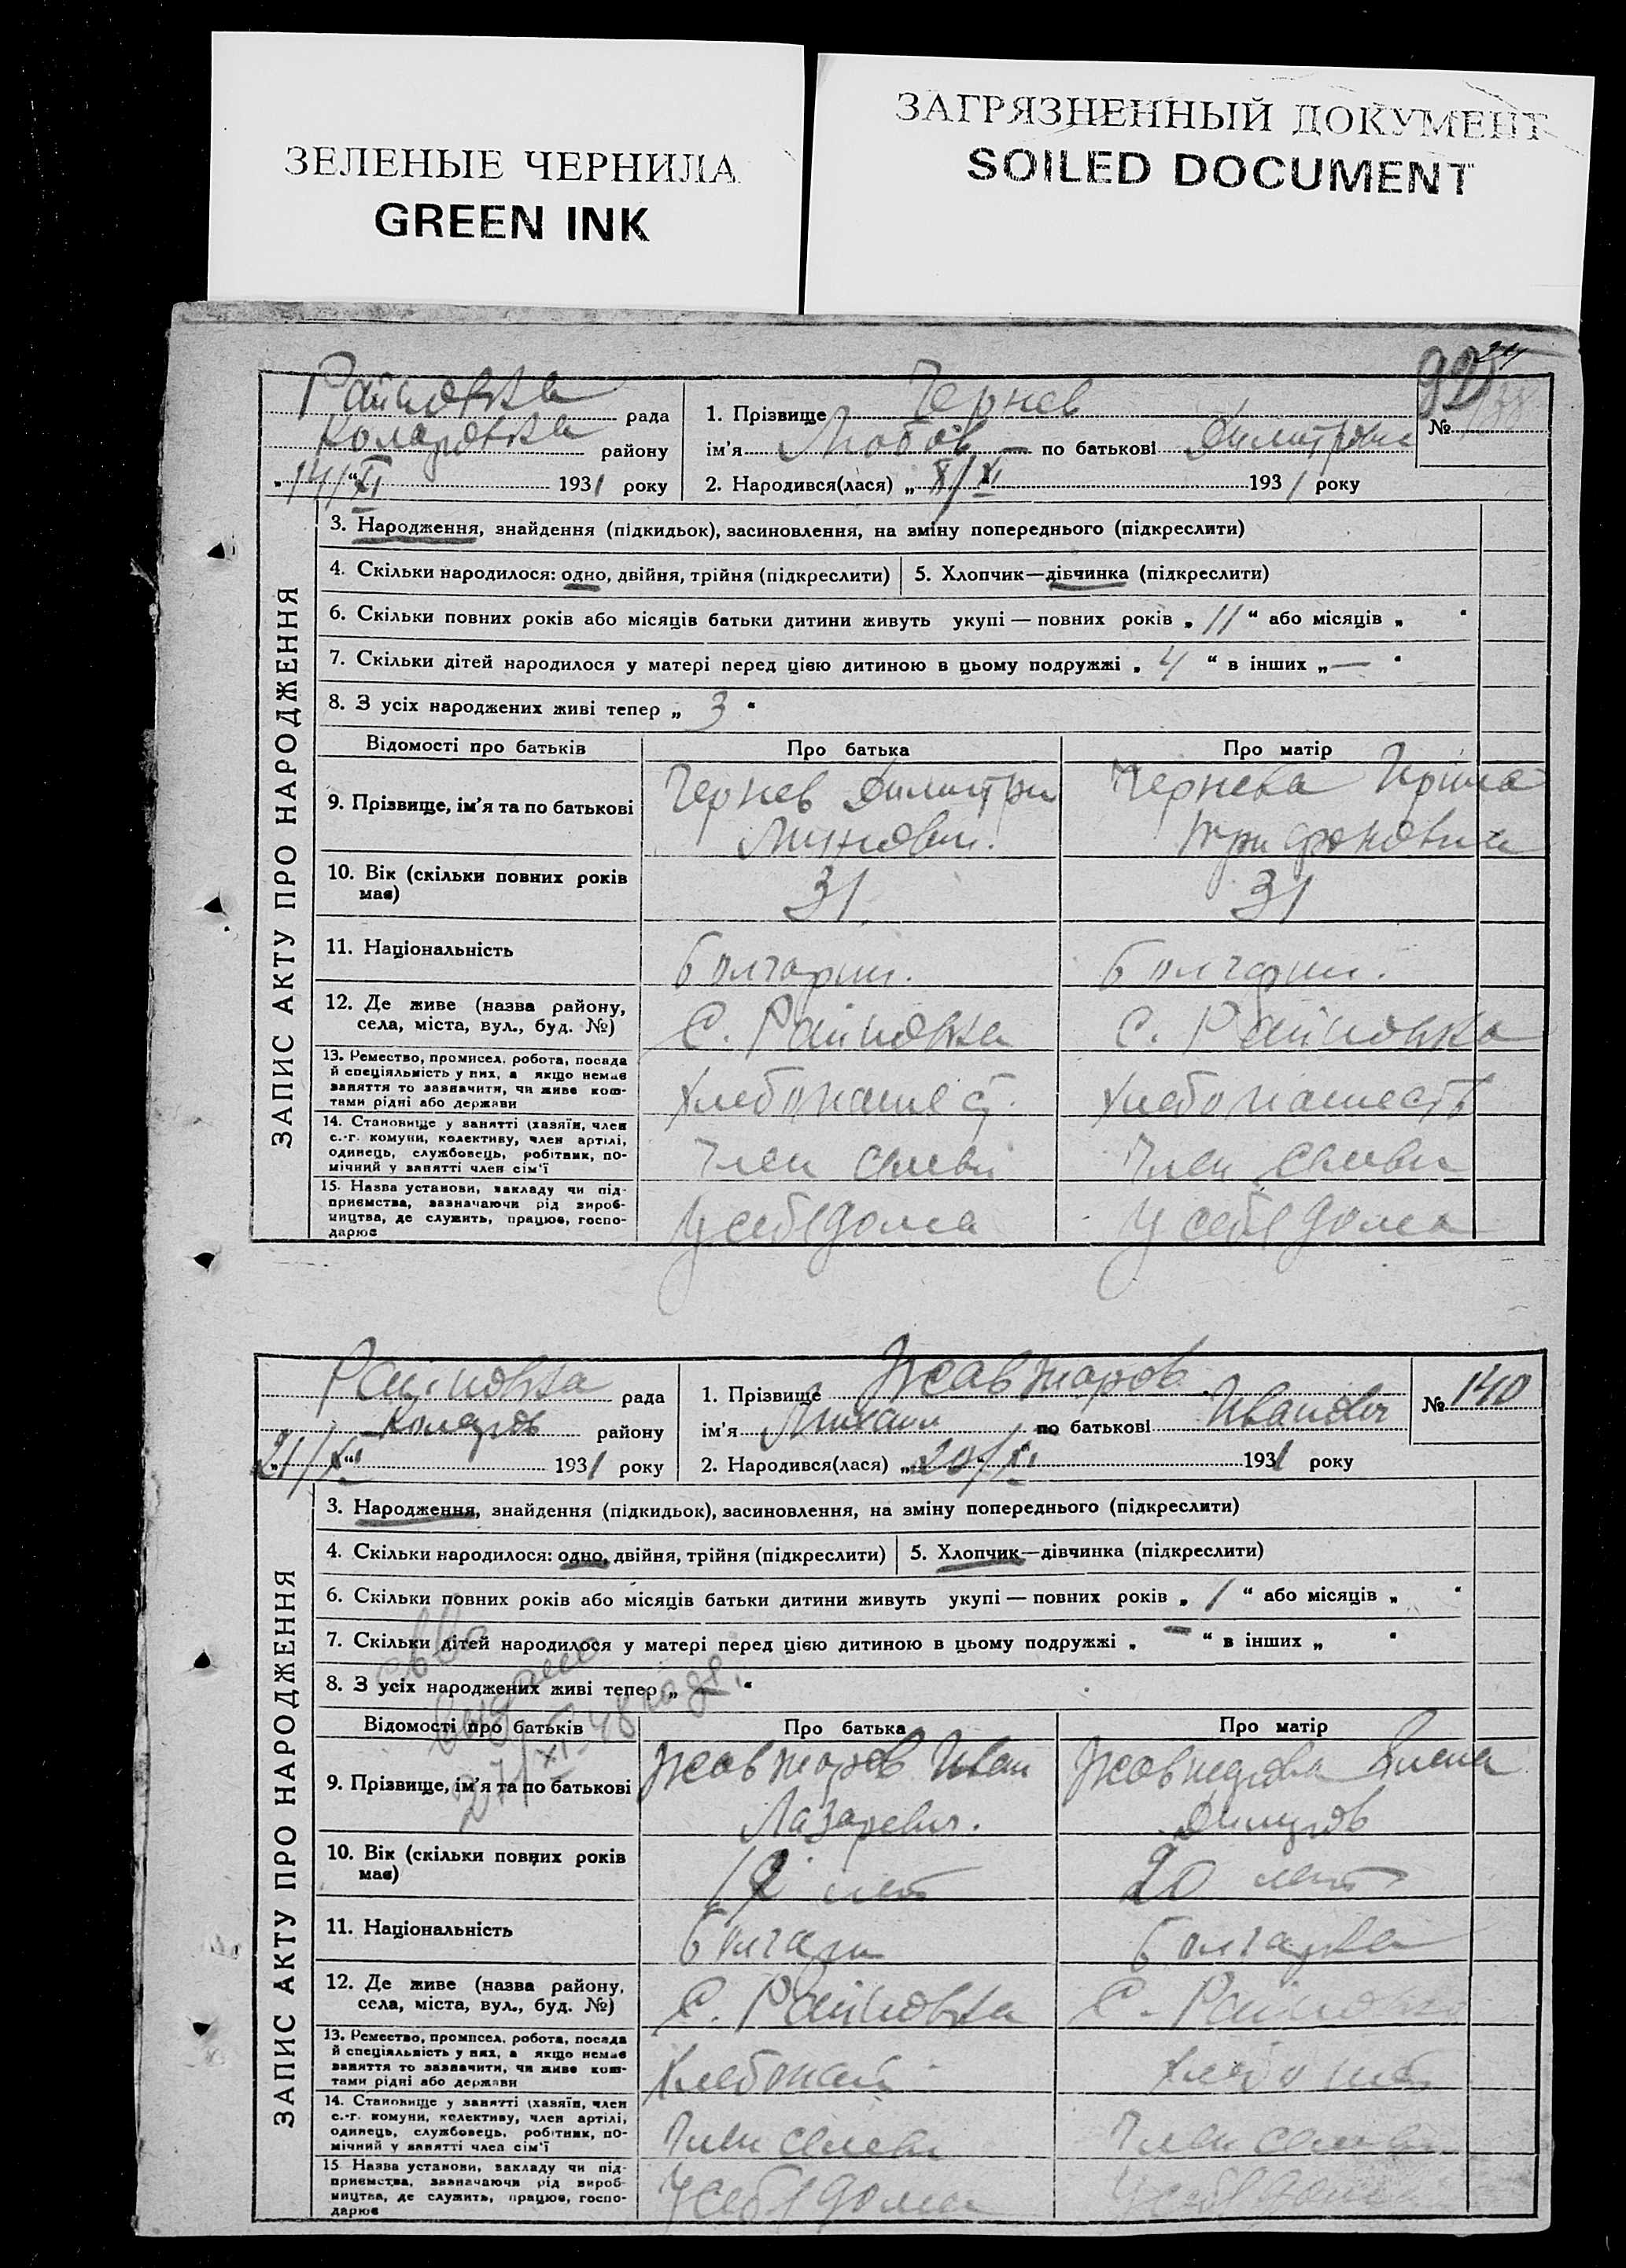 ЗЕЛЕНЫЕ ЧЕРНИЛА
GREEN INK
ЗАГРЯЗНЕННЫЙ ДОКУМЕНТ
SOILED DOCUMENT
92
Райновка рада
Коларовка району
14/XI 1931 року
1. Прізвище Чернев
ім'я Любов — по батькові Димитрови
2. Народився(лася) „ X/XI 1931 року
№
ЗАПИС АКТУ ПРО НАРОДЖЕННЯ
3. Народження, знайдення (підкидьок), засиновлення, на зміну попереднього (підкреслити)
4. Скільки народилося: одно, двійня, трійня (підкреслити) 5. Хлопчик—дівчинка (підкреслити)
6. Скільки повних років або місяців батьки дитини живуть укупі — повних років „ 11 “ або місяців „ “
7. Скільки дітей народилося у матері перед цією дитиною в цьому подружжі „ 4 “ в інших „ — “
8. З усіх народжених живі тепер „ 3 “
Відомості про батьків Про батька Про матір
9. Прізвище, ім'я та по батькові Чернев Димитри Чернева Ирина
10. Вік (скільки повних років має) 31 31
11. Національність болгарин. болгарин.
12. Де живе (назва району, села, міста, вул., буд. №) С. Райновка С. Райновка
13. Ремество, промисел, робота, посада
й спеціяльність у них, а якщо немає
заняття то зазначити, чи живе кош-
тами рідні або держави
14. Становище у занятті (хазяїн, член
с.-г. комуни, колективу, член артілі,
одинець, службовець, робітник, по-
мічний у занятті член сім'ї
Член семьи Член семьи
15. Назва установи, закладу чи під-
приємства, зазначаючи рід вироб-
ництва, де служить, працює, госпо-
дарює
У себе дома У себе дома
Райновка рада
Коларов району
21/XI 1931 року
1. Прізвище
ім'я Михаил по батькові Иванович
2. Народився(лася) „ 20/XI 1931 року
№ 140
ЗАПИС АКТУ ПРО НАРОДЖЕННЯ
3. Народження, знайдення (підкидьок), засиновлення, на зміну попереднього (підкреслити)
4. Скільки народилося: одно, двійня, трійня (підкреслити) 5. Хлопчик—дівчинка (підкреслити)
6. Скільки повних років або місяців батьки дитини живуть укупі — повних років „ 1 “ або місяців „ “
7. Скільки дітей народилося у матері перед цією дитиною в цьому подружжі „ — “ в інших „ “
8. З усіх народжених живі тепер „ — “
выдано
27/XI 48 года.
Відомості про батьків Про батька Про матір
9. Прізвище, ім'я та по батькові Иван
Лазаревич.
10. Вік (скільки повних років має) лет 20 лет
11. Національність болгарин болгарка
12. Де живе (назва району, села, міста, вул., буд. №) С. Райновка С. Райновка
13. Ремество, промисел, робота, посада
й спеціяльність у них, а якщо немає
заняття то зазначити, чи живе кош-
тами рідні або держави
14. Становище у занятті (хазяїн, член
с.-г. комуни, колективу, член артілі,
одинець, службовець, робітник, по-
мічний у занятті член сім'ї
Член семьи Член семьи
15. Назва установи, закладу чи під-
приємства, зазначаючи рід вироб-
ництва, де служить, працює, госпо-
дарює
У себе дома У себе дома